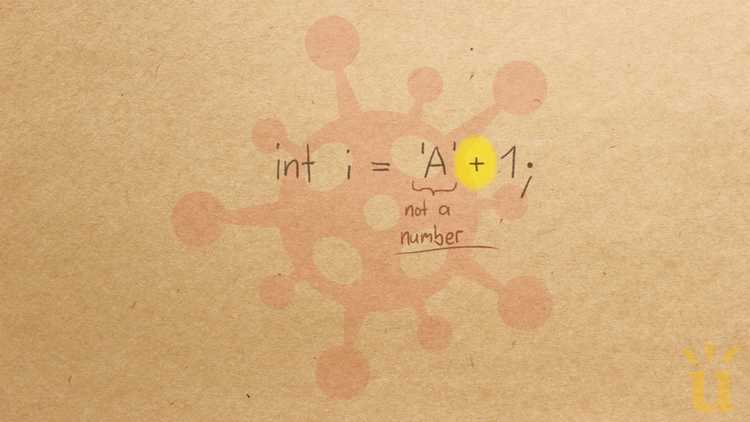 int i = 'A' + 1;
not a
number
u